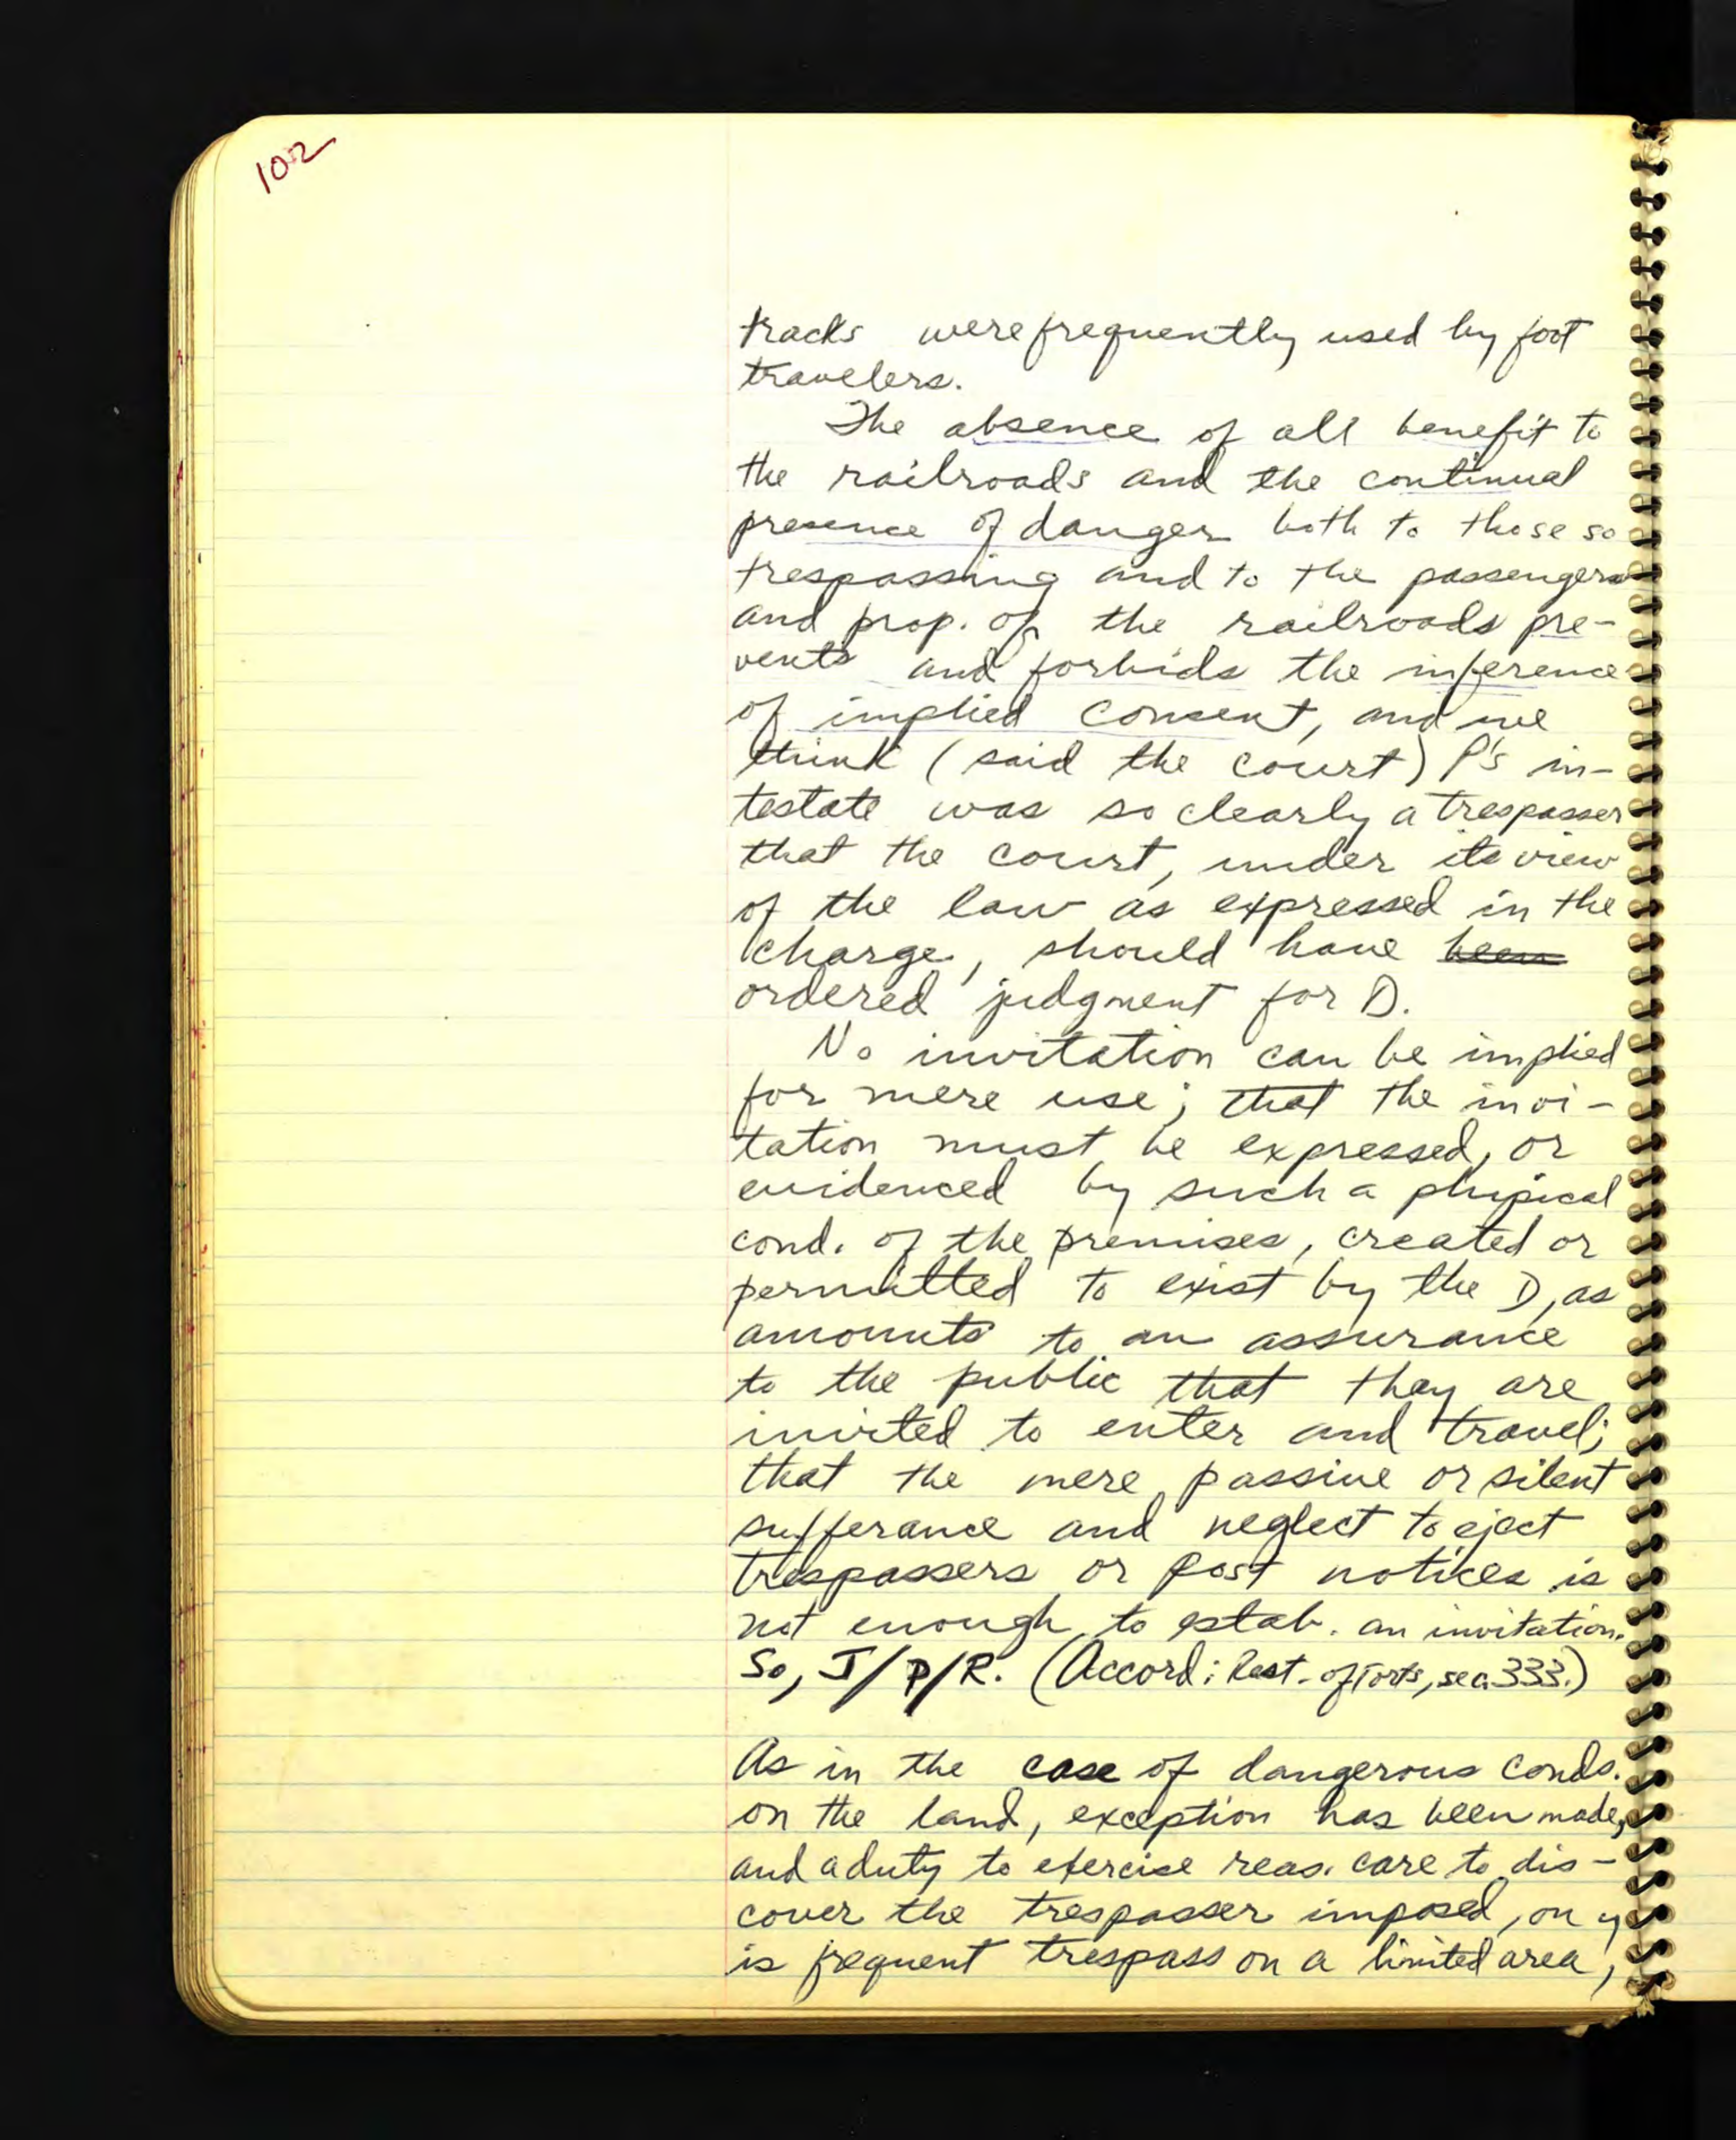 102
tracks were frequently used by foot
travelers.
The absence of all benefit to
the railroads and the continual
presence of danger both to those so
trespassing and to the passengers
and prop. of the railroads pre-
vents and forbids the inference
of implied consent, and we
think (said the court) P's in-
testate was so clearly a trespasser
that the court, under its view
of the law as expressed in the
charge, should have been
ordered judgment for D.
No invitation can be implied
for mere use; that the invi-
tation must be expressed, or
evidenced by such a physical
cond. of the premises, created or
permitted to exist by the D, as
amounts to an assurance
to the public that they are
invited to enter and travel;
that the mere passive or silent
sufferance and neglect to eject
trespassers or post notices is
not enough to estab. an invitation.
So, J/P/R. (Accord: Rest. of Torts, sec. 333.)
As in the case of dangerous conds.
on the land, exception has been made,
and a duty to exercise reas. care to dis-
cover the trespasser imposed, on
is frequent trespass on a limited area,